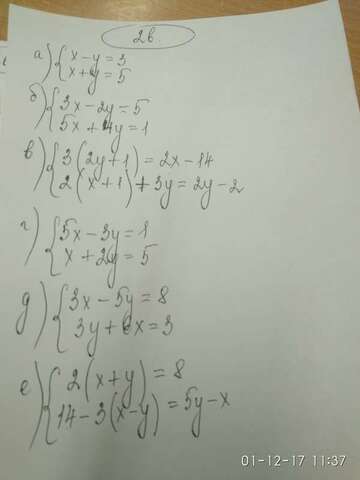 2в.
а) { x - y = 3
x + y = 5
б) { 3x - 2y = 5
5x + 4y = 1
в) { 3(2y+1) = 2x - 14
2(x+1) + 3y = 2y - 2
г) { 5x - 3y = 1
x + 2y = 5
д) { 3x - 5y = 8
3y + 6x = 3
е) { 2(x+y) = 8
14 - 3(x-y) = 5y - x
01-12-17 11:37